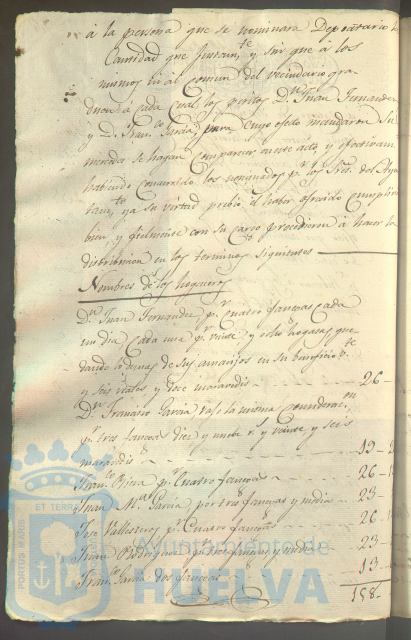 á la persona que se nominara Depositario
Cantidad que Justamte. y sin que á los
mismos ni al comun del vecindario gra
duen á cada cual los peritos Dn. Juan Fernandez
y Dn. Franco. Garcia, para cuyo efecto mandaron Su
merced se hagan comparecer en este acto, y efectivam
habiendo concurrido los pr. los Sres. del Ayu
tamto. ya su virtud previo el haber ofrecido cumplir
bien, y fielmente con su cargo procedieron á hacer la
distribucion en los terminos siguientes
Nombres de los hogueros
Dn. Juan Fernandez pr. cuatro fanegas cada
un dia cada una pr. veinte y ocho hogazas que
dando ademas de sus en su beneficio
y seis reales y doce maravedis 26-
Dn. Francisco Garcia vajo la misma consideracon.
pr. tres fanegas diez y nueve rs. y veinte y seis
maravedis 19-2
Franco. pr. cuatro fanegas 26-1
Juan Ma. Garcia por tres fanegas y media 23-
Jose Vallesteros pr. cuatro fanegas 26-1
Juan Rodriguez pr. tres fanegas y media 23-
Franco. Garcia dos fanegas 13-
158-
PORTUS MARIS
ET TERRÆ
Ayuntamiento de
HUELVA